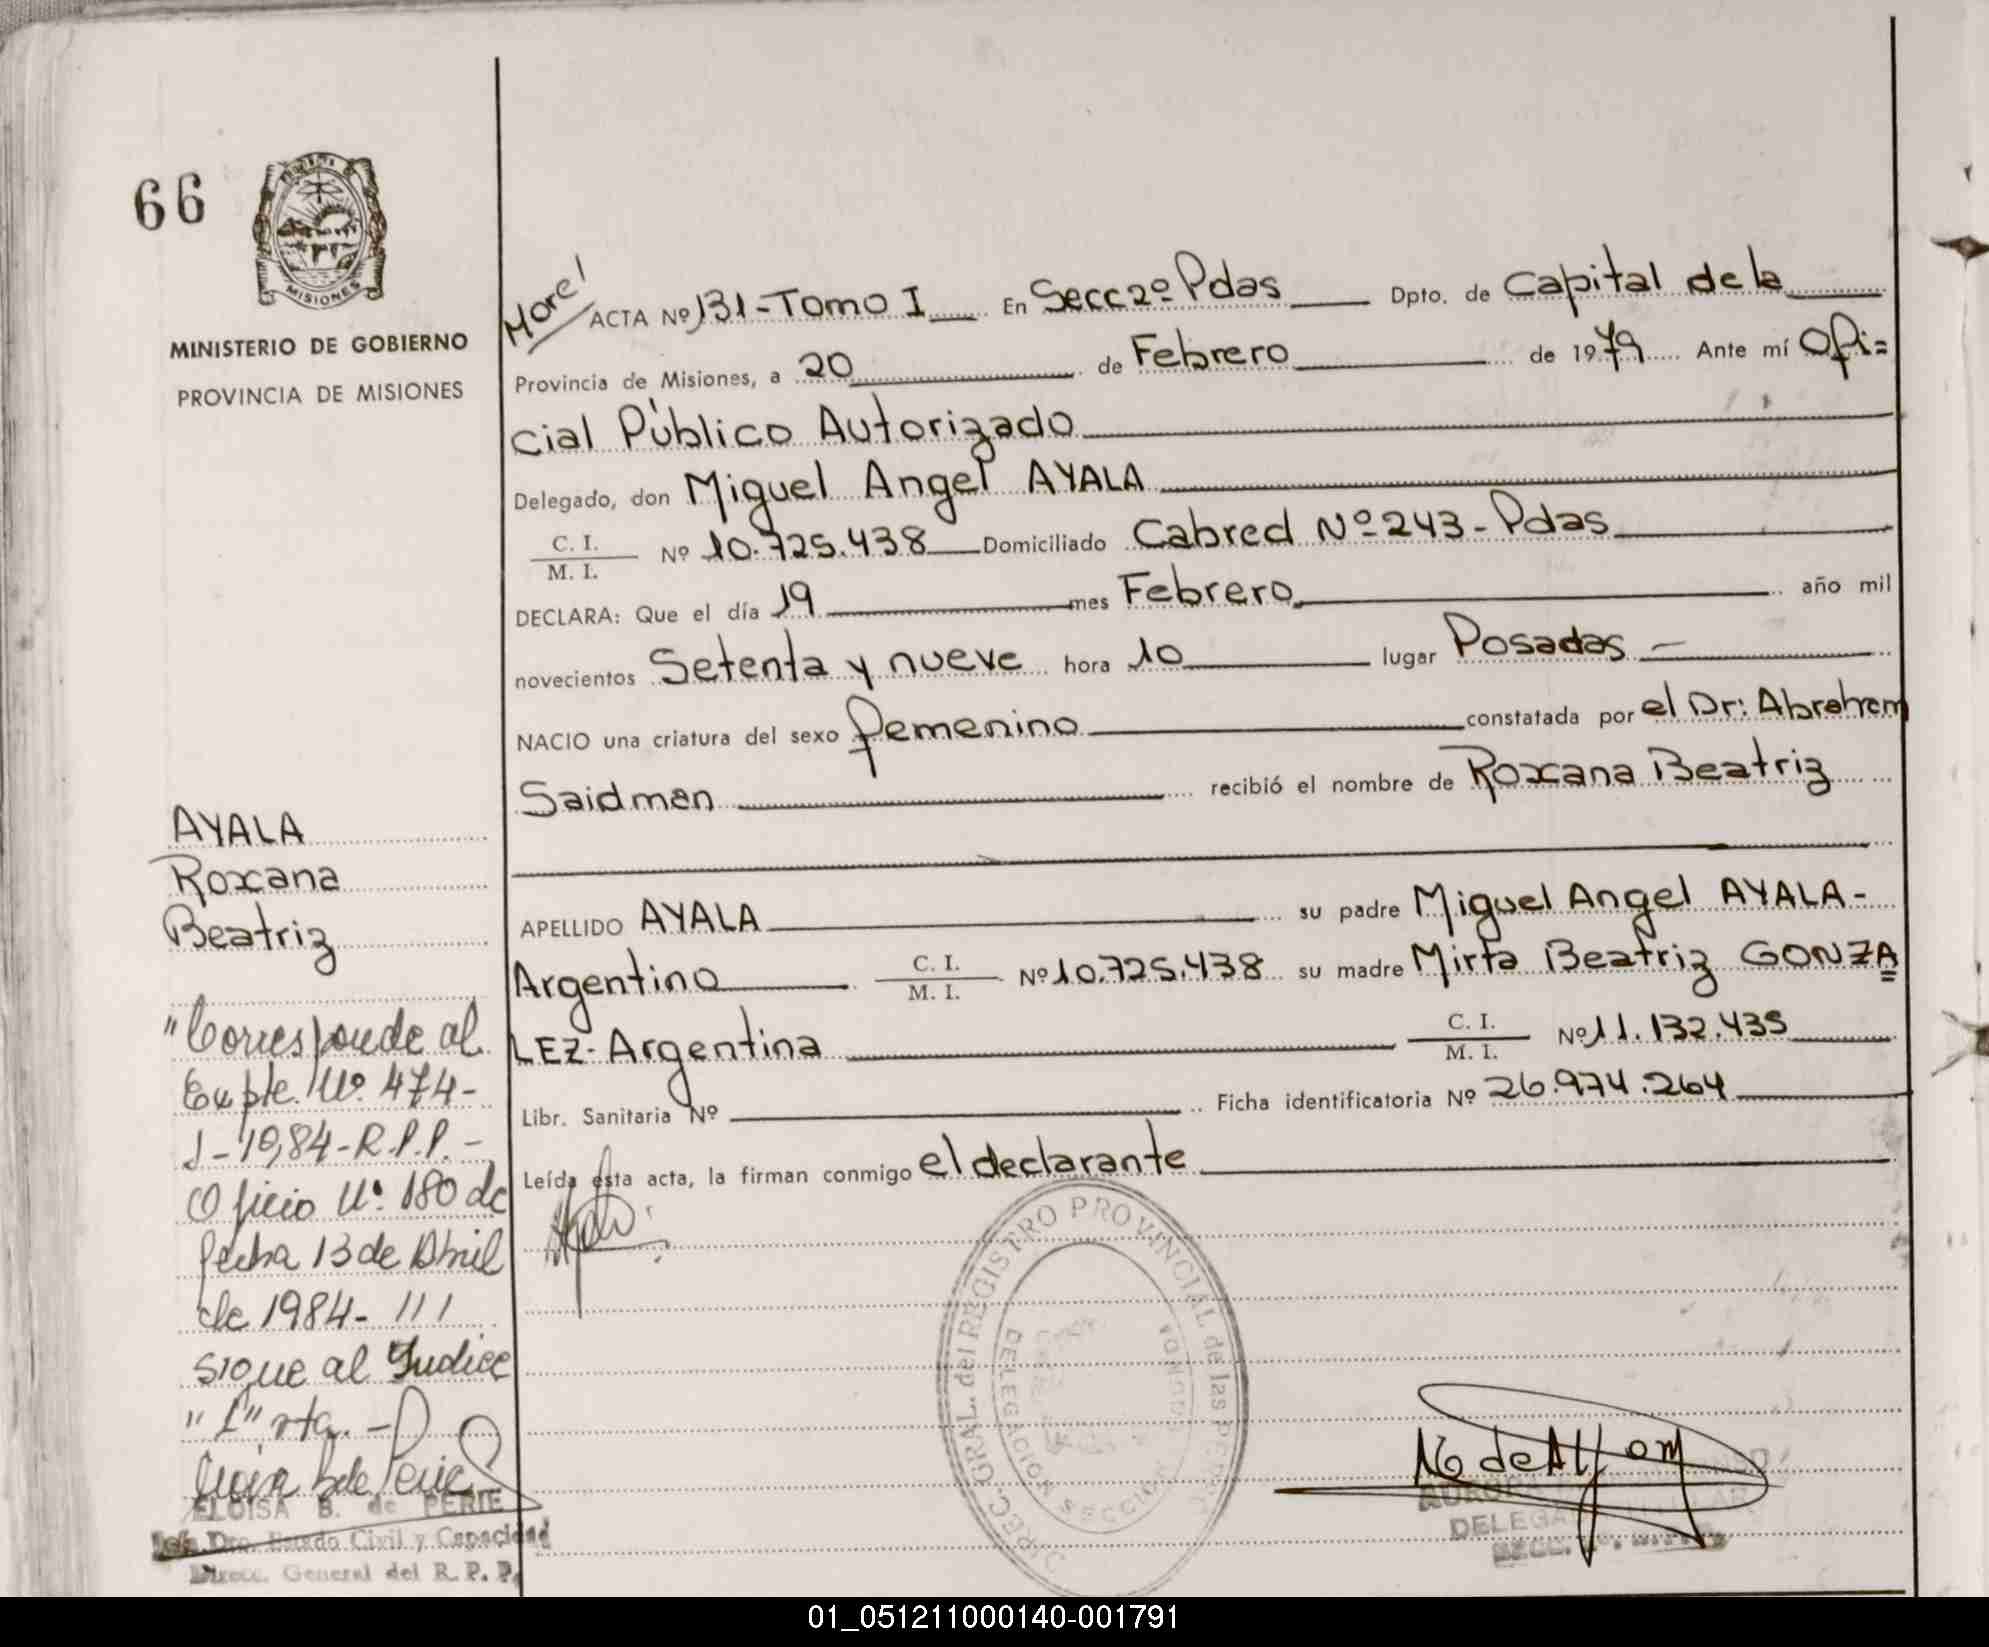 66
MISIONES
MINISTERIO DE GOBIERNO
PROVINCIA DE MISIONES
AYALA
Roxana
Beatriz
"Corresponde al
Expte. Nº. 474-
J-1984-R.P.P.-
Oficio Nº. 180 de
fecha 13 de Abril
de 1984- ///
sigue al Indice
ELOISA B. de PERIE
Jefe Dro. Estado Civil y Capacidad
Direcc. General del R. P. P.
ACTA Nº 131-Tomo I En Secc 2º Pdas Dpto. de Capital de la
Provincia de Misiones, a 20 de Febrero de 1979 Ante mí Ofi=
cial Público Autorizado
Delegado, don Miguel Angel AYALA
C. I.
M. I. Nº 10.725.438 Domiciliado Cabred Nº 243-Pdas
DECLARA: Que el día 19 mes Febrero año mil
novecientos Setenta y nueve hora 10 lugar Posadas -
NACIO una criatura del sexo femenino constatada por el Dr: Abraham
Saidman recibió el nombre de Roxana Beatriz
APELLIDO AYALA su padre Miguel Angel AYALA-
Argentino C. I.
M. I. Nº 10.725.438 su madre Mirta Beatriz GONZA
LEZ- Argentina C. I.
M. I. Nº 11.132.435
Libr. Sanitaria Nº Ficha identificatoria Nº 26.974.264
Leída esta acta, la firman conmigo el declarante
DIREC. GRAL. del REGISTRO PROVINCIAL de las
DELEGACION SECCION
01_051211000140-001791